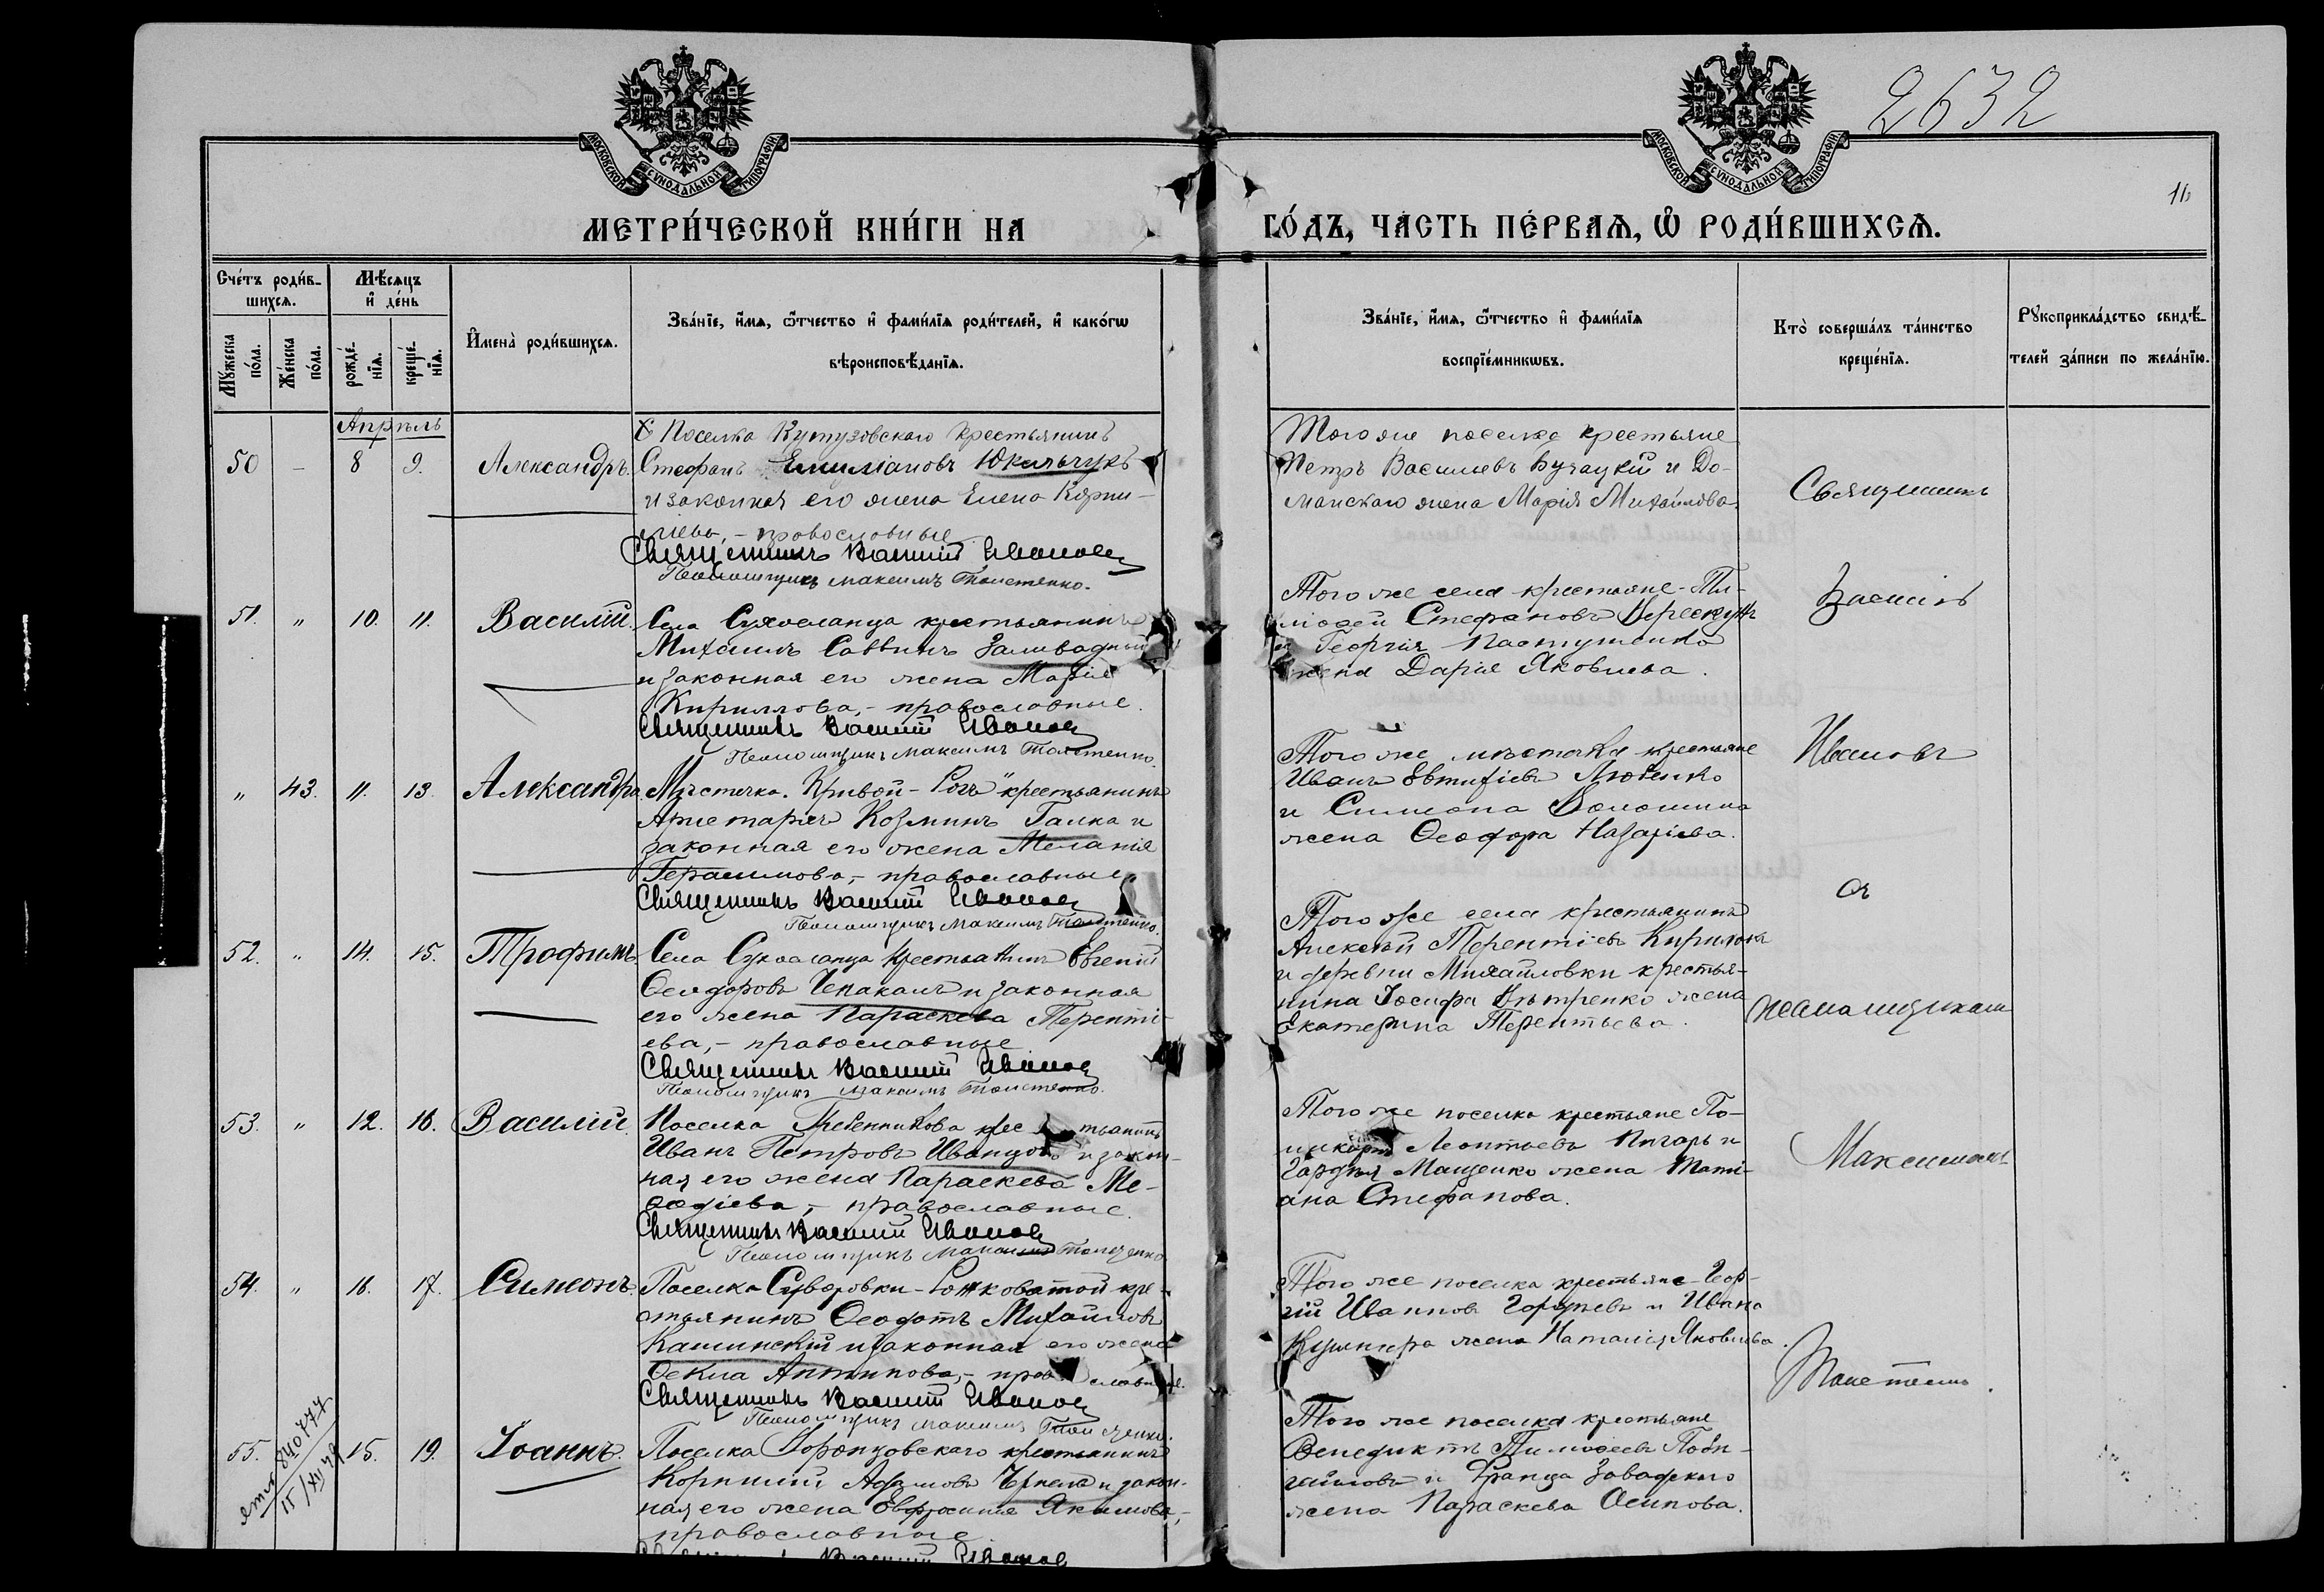 2632
11
МОСКОВСКОЙ СѴНОДАЛЬНОЙ ТИПОГРАФІИ
МОСКОВСКОЙ СѴНОДАЛЬНОЙ ТИПОГРАФІИ
МЕТРИ́ЧЕСКОЙ КНИ́ГИ НА
ГО́ДЪ, ЧА́СТЬ ПЕ́РВАѦ, Ѽ РОДИ́ВШИХСѦ.
Сче́тъ роди́в-
шихсѧ.
Мꙋ́жеска по́ла.
Же́нска по́ла.
Мѣ́сѧцъ
и҆ де́нь
рожде́-нїѧ.
креще́-нїѧ.
И҆мена̀ роди́вшихсѧ.
Зва́нїе, и҆́мѧ, ѻ҆́тчество и҆ фами́лїѧ роди́телей, и҆ како́гѡ
вѣроисповѣ́данїѧ.
Зва́нїе, и҆́мѧ, ѻ҆́тчество и҆ фами́лїѧ
воспрїе́мникѡвъ.
Кто̀ соверша́лъ та́инство
креще́нїѧ.
Рꙋкоприкла́дство свидѣ́-
телей за́писи по жела́нїю.
Апрѣль
50 - 8 9. Александръ.
Поселка Кутузовскаго крестьянинъ
Стефанъ Емиліановъ Юкальчукъ
и законная его жена Елена Корни-
лиева, - православные
Священникъ Василій Ивановъ
Псаломщикъ Максимъ Толстенко.
Того же поселка крестьяне
Петръ Василіевъ Бучацкій и До-
манскаго жена Марія Михайлова.
51. " 10. 11. Василій.
Села Сухоеланца крестьянинъ
Михаилъ Саввинъ Заливадный
и законная его жена Марія
Кириллова, - православные.
Священникъ Василій Ивановъ
Псаломщикъ Максимъ Толстенко.
Того же села крестьяне - Ти-
моѳей Стефановъ Верескунъ
и Георгія Пастушенко
жена Дарія Яковлева.
" 43. 11. 13. Александра.
Мѣстечка "Кривой-Рогъ" крестьянинъ
Аристархъ Козминъ Галка и
законная его жена Меланія
Герасимова, - православные.
Священникъ Василій Ивановъ
Псаломщикъ Максимъ Толстенко.
Того же мѣстечка крестьяне
Иванъ Евтихіевъ Любенко
и Симеона Волошина
жена Ѳеодора Назаріева.
52. " 14. 15. Трофимъ.
Села Сухоеланца крестьянинъ Евгеній
Ѳеодоровъ Чекаканъ и законная
его жена Параскева Теренті-
ева, - православные
Священникъ Василій Ивановъ
Псаломщикъ Максимъ Толстенко.
Того же села крестьянинъ
Алексѣй Терентіевъ Кирилюкъ
и деревни Михайловки крестья-
нина Іосифа Дмитренко жена
Екатерина Терентьева.
53. " 12. 16. Василій.
Поселка Гребенникова крестьянинъ
Иванъ Петровъ Иванцовъ и закон-
ная его жена Параскева Ме-
ѳодіева, - православные.
Священникъ Василій Ивановъ
Псаломщикъ Максимъ Толстенко
Того же поселка крестьяне По-
ликарпъ Леонтьевъ Пугарь и
Гордѣя Мащенко жена Тати-
ана Стефанова.
54. " 16. 17. Симеонъ.
Поселка Суворовки-Рожковатой кре-
стьянинъ Ѳеодотъ Михайловъ
Кашинскій и законная его жена
Ѳекла Антипова, - православные.
Священникъ Василій Ивановъ
Псаломщикъ Максимъ Толстенко.
Того же поселка крестьяне - Геор-
гій Ивановъ Гордѣевъ и Ивана
Кушнира жена Наталія Яковлева.
55. 15. 19. Іоаннъ.
840777
15/XII 49
Поселка Воронцовскаго крестьянинъ
Корнилій Адамовъ Чепель и закон-
ная его жена Евфросинія Якимова, -
православные
Священникъ Василій Ивановъ
Того же поселка крестьяне
Венедиктъ Тимоѳеевъ Поби-
гайловъ и Франца Завадскаго
жена Параскева Осипова.
Священникъ
Василій
Ивановъ
съ
псаломщикомъ
Максимомъ
Толстенко.